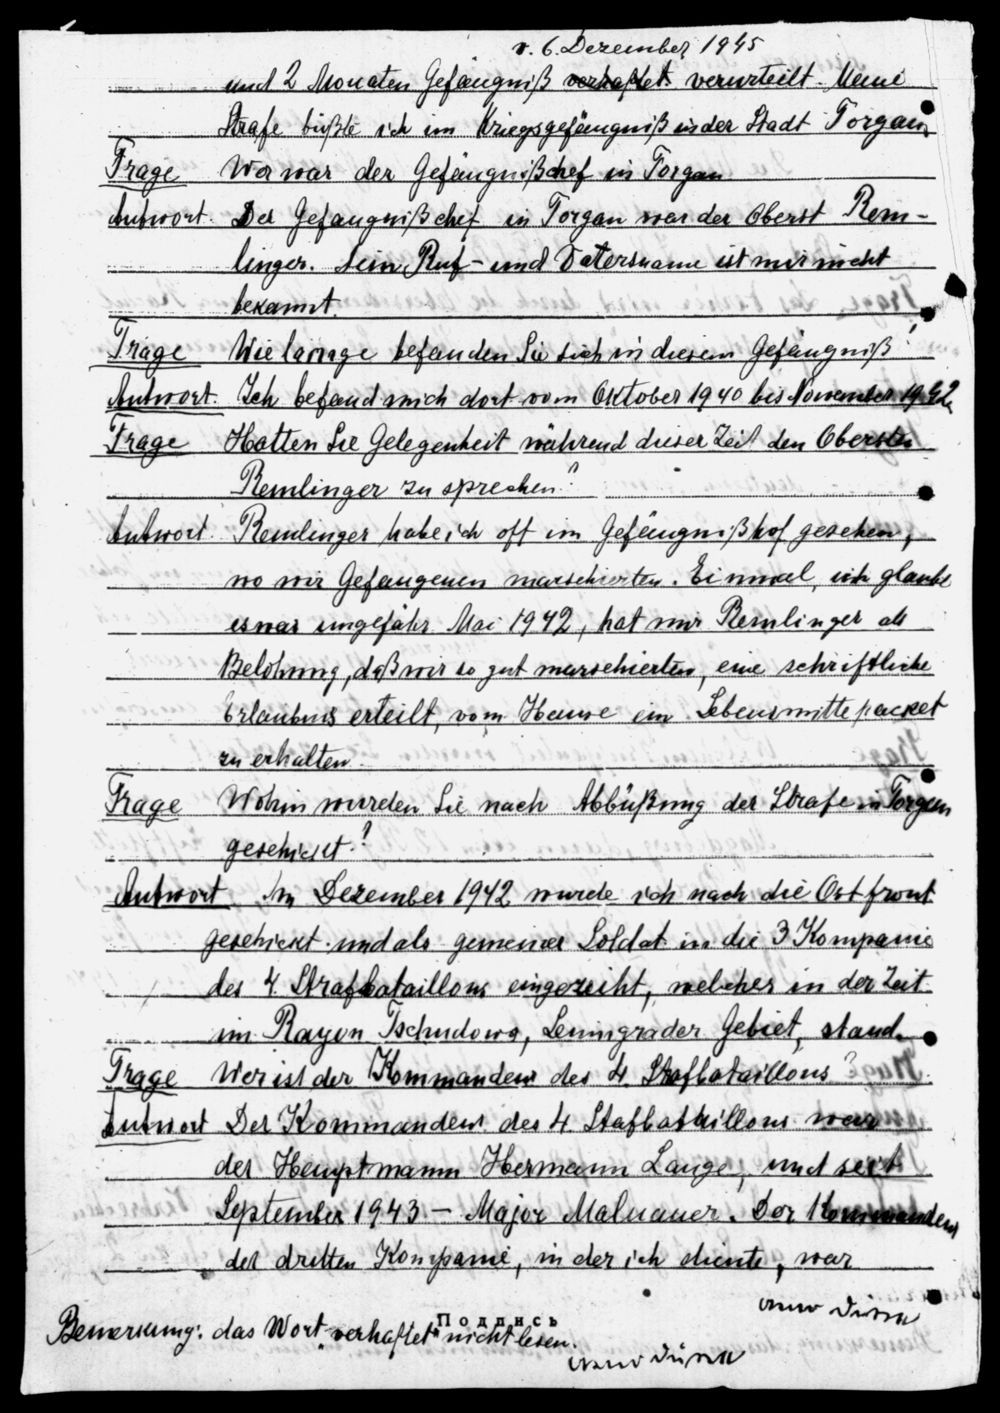 v. 6. Dezember 1945
und 2 Monaten Gefängniß verhaftet verurteilt. Meine
Strafe büßte ich im Kriegsgefängniß in der Stadt Torgau.
Frage Wer war der Gefängnißchef in Torgau
Antwort. Der Gefängnißchef in Torgau war der Oberst Rem-
linger. Sein Ruf- und Vatersname ist mir nicht
bekannt.
Frage Wie lange befanden Sie sich in diesem Gefängniß?
Antwort. Ich befand mich dort vom Oktober 1940 bis November 1942.
Frage Hatten Sie Gelegenheit während dieser Zeit den Obersten
Remlinger zu sprechen?
Antwort. Remlinger habe ich oft im Gefängnißhof gesehen,
wo wir Gefangenen marschierten. Einmal, ich glaube
es war ungefähr Mai 1942, hat mir Remlinger als
Belohnung, daß wir so gut marschierten, eine schriftliche
Erlaubnis erteilt, vom Hause ein Lebensmittepacket
zu erhalten.
Frage Wohin wurden Sie nach Abbüßung der Strafe in Torgau
geschickt?
Antwort Im Dezember 1942 wurde ich nach die Ostfront
geschickt und als gemeiner Soldat in die 3 Kompanie
des 4. Strafbataillons eingereiht, welches in der Zeit
im Rayon Tschudowa, Leningrader Gebiet, stand.
Frage Wer ist der Kommandeur des 4. Strafbataillons?
Antwort Der Kommandeur des 4. Stafbataillons war
der Hauptmann Hermann Lange, und seit
September 1943 – Major Malnauer. Der Kommandeur
der dritten Kompanie, in der ich diente, war
Подпись
Bemerkung: das Wort „verhaftet" nicht lesen.